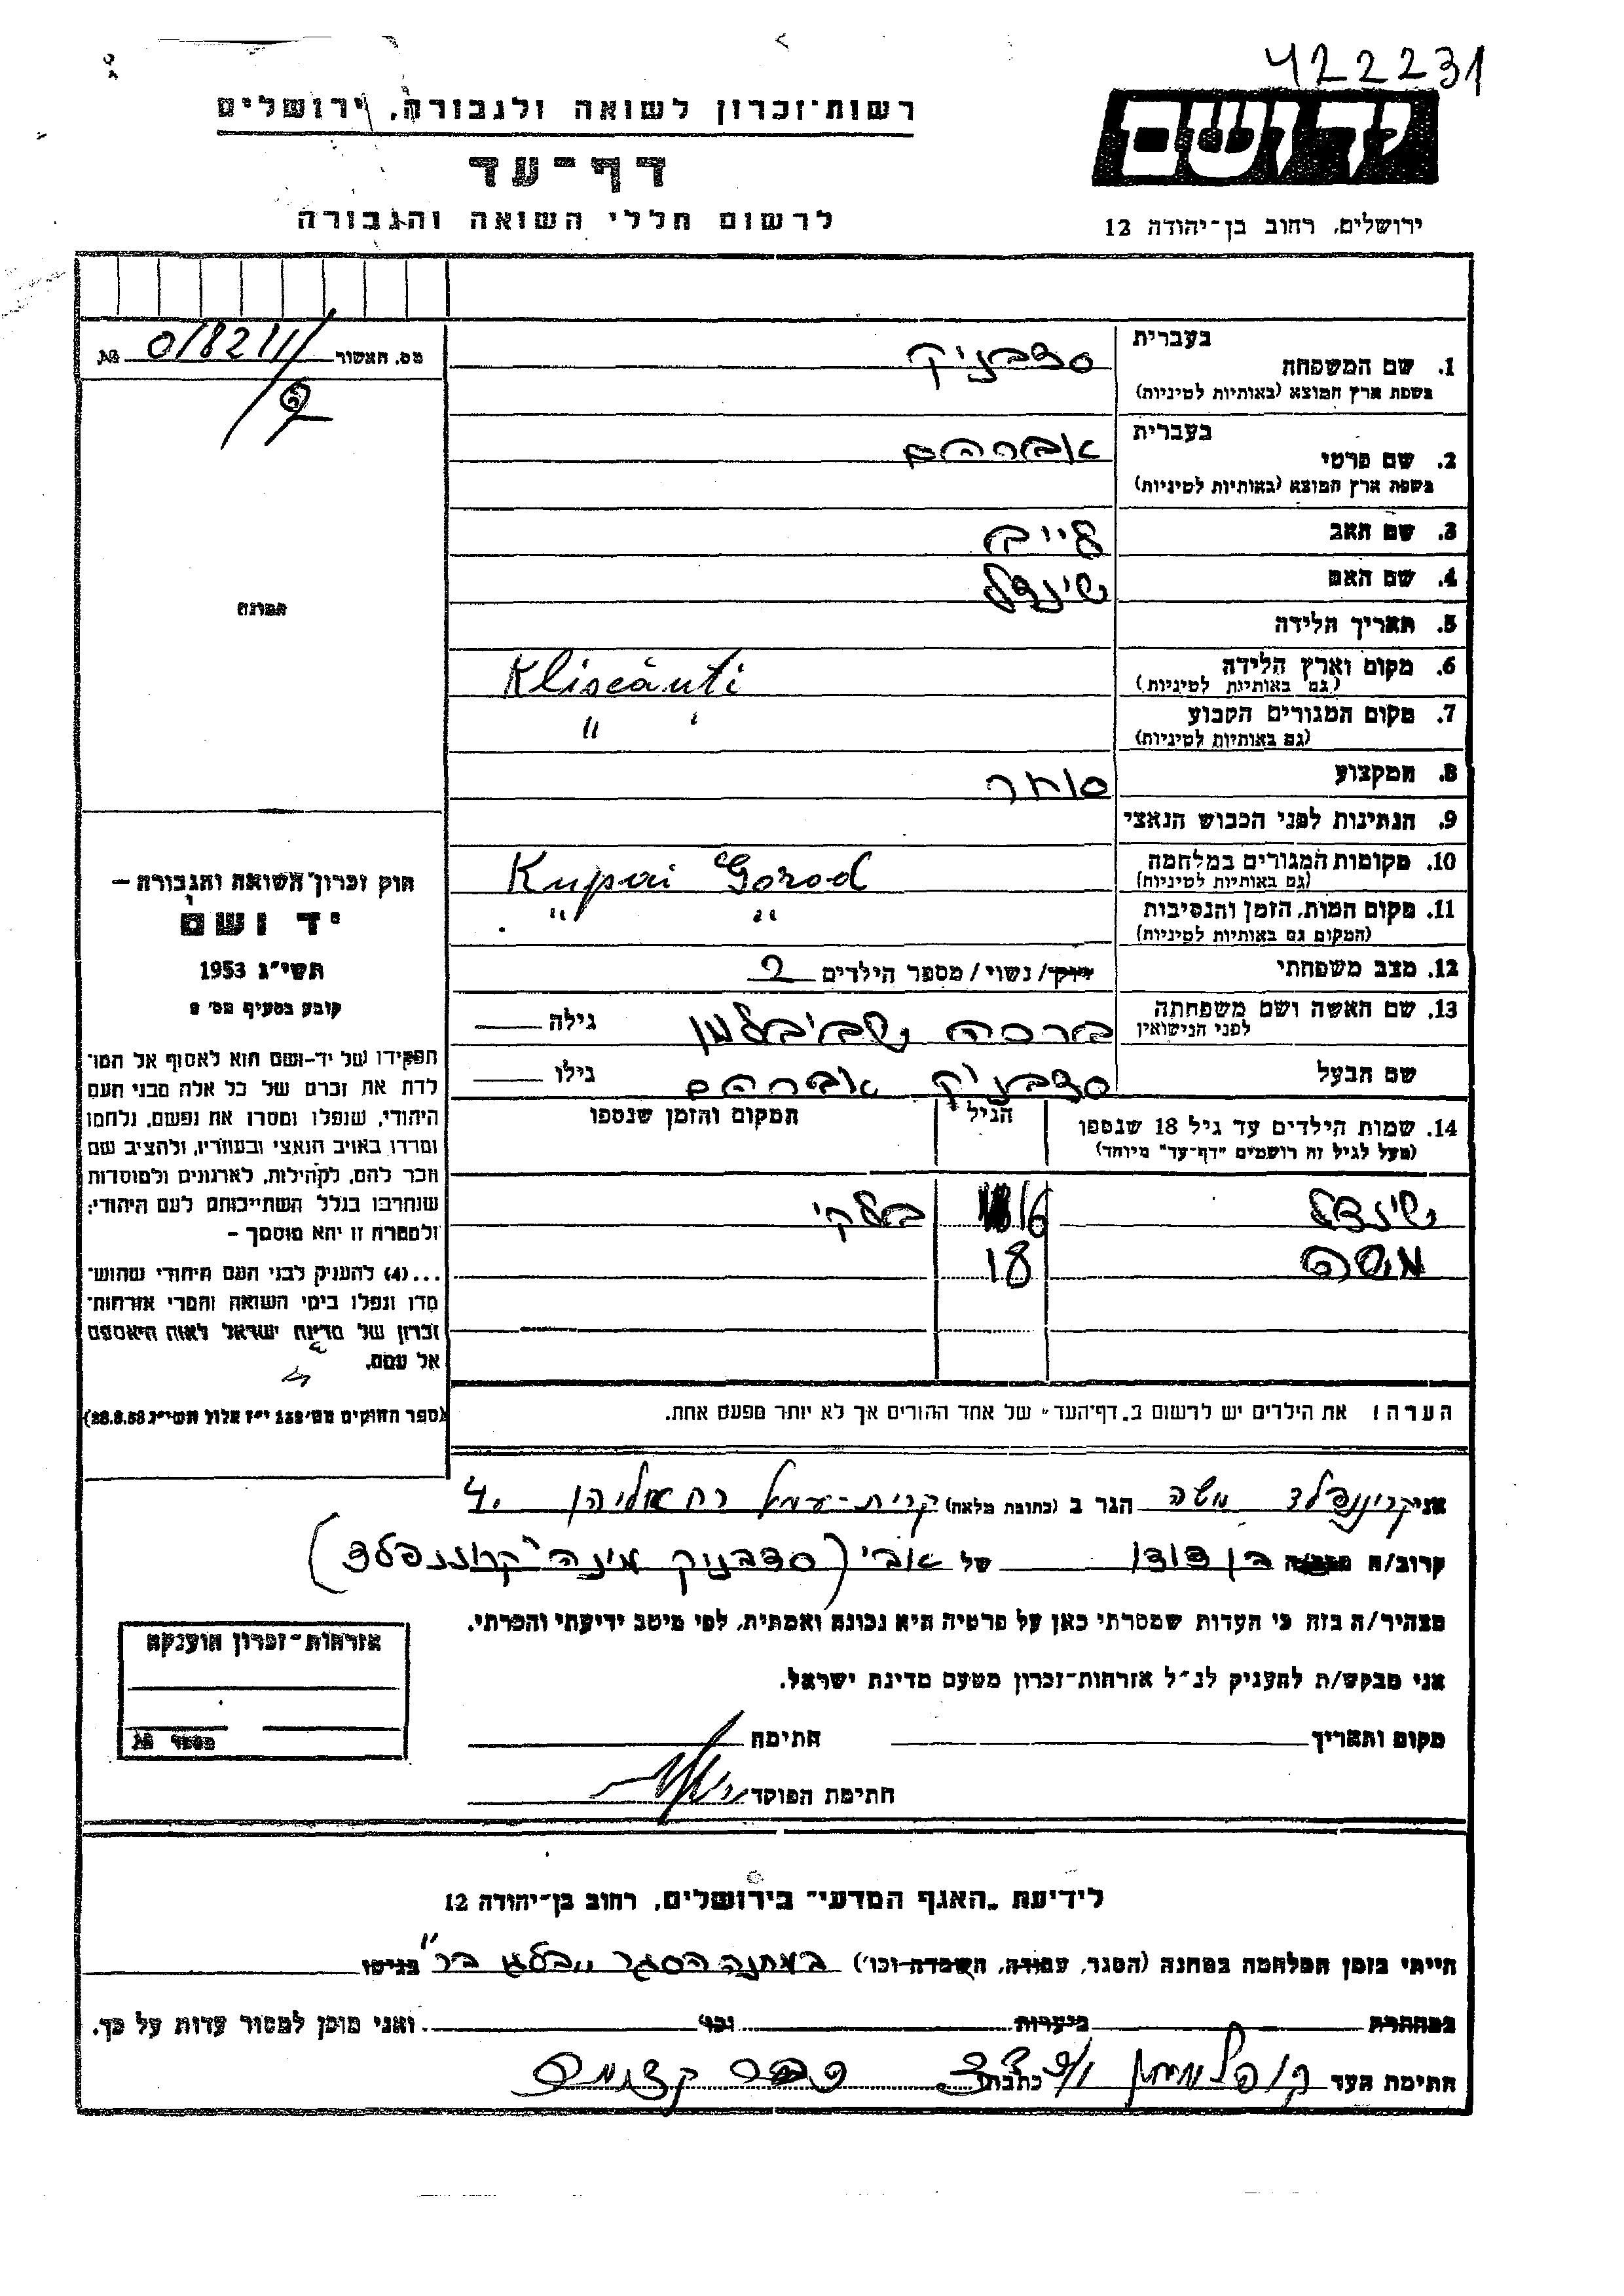 422231
רשות-זכרון לשואה ולגבורה, ירושלים
יד ושם
דף-עד
לרשום חללי השואה והגבורה
ירושלים, רחוב בן-יהודה 12
מס. האשור 0/8211/ מת.
1. שם המשפחה בעברית סדבניק
בשפת ארץ המוצא (באותיות לטיניות)
2. שם פרטי בעברית אברהם
בשפת ארץ המוצא (באותיות לטיניות)
3. שם האב
4. שם האם שינדל
5. תאריך הלידה
6. מקום וארץ הלידה Kliscăuti
(גם באותיות לטיניות)
7. מקום המגורים הקבוע " "
(גם באותיות לטיניות)
8. המקצוע סוחר
9. הנתינות לפני הכבוש הנאצי
10. מקומות המגורים במלחמה Kupai Gorod
(גם באותיות לטיניות)
11. מקום המות, הזמן והנסיבות " "
(המקום גם באותיות לטיניות)
12. מצב משפחתי רווק/ נשוי / מספר הילדים 2
13. שם האשה ושם משפחתה ברכה גילה
לפני הנישואין
שם הבעל סדבניק אברהם גילו
14. שמות הילדים עד גיל 18 שנספו הגיל המקום והזמן שנספו
(מעל לגיל זה רושמים "דף-עד" מיוחד)
שינדל 16
משה 18
הערה: את הילדים יש לרשום ב"דף-העד" של אחד ההורים אך לא יותר מפעם אחת.
תמונה
חוק זכרון השואה והגבורה –
יד ושם
תשי"ג 1953
קובע בסעיף מס' 2
תפקידו של יד-ושם הוא לאסוף אל המו־
לדת את זכרם של כל אלה מבני העם
היהודי, שנפלו ומסרו את נפשם, נלחמו
ומרדו באויב הנאצי ובעוזריו, ולהציב שם
וזכר להם, לקהילות, לארגונים ולמוסדות
שנחרבו בגלל השתייכותם לעם היהודי;
ולמטרה זו יהא מוסמך –
...(4) להעניק לבני העם היהודי שהוש־
מדו ונפלו בימי השואה והמרי אזרחות־
זכרון של מדינת ישראל לאות היאספם
אל עמם.
(ספר החוקים מס' 132 י"ז אלול תשי"ג 28.8.53)
אני קריננפלד משה הגר ב (כתובת מלאה) קרית-עמל רח אליהן 4.
קרוב/ה בן דודו של אבי (סדבניק מינה קרוננפלד)
מצהיר/ה בזה כי העדות שמסרתי כאן על פרטיה היא נכונה ואמתית, לפי מיטב ידיעתי והכרתי.
אני מבקש/ת להעניק לנ"ל אזרחות-זכרון מטעם מדינת ישראל.
מקום ותאריך חתימה
חתימת הפוקד
אזרחות-זכרון הוענקה
מספר מת
לידיעת "האגף המדעי" בירושלים, רחוב בן-יהודה 12
הייתי בזמן המלחמה במחנה (הסגר, עבודה, השמדה וכו') במחנה הסגר בגיטו
במחתרת ביערות וכו' ואני מוכן למסור עדות על כך.
חתימת העד כתבת